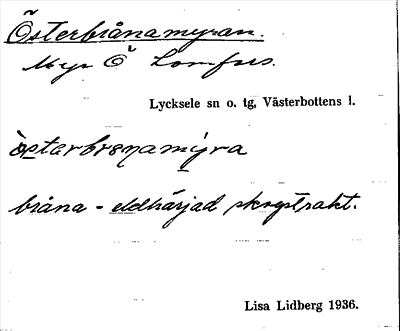 Österbrånamyran.
Myr Ö Lomfors.
Lycksele sn o. tg, Västerbottens l.
österbrånamýra
bråna - eldhärjad skogstrakt.
Lisa Lidberg 1936.